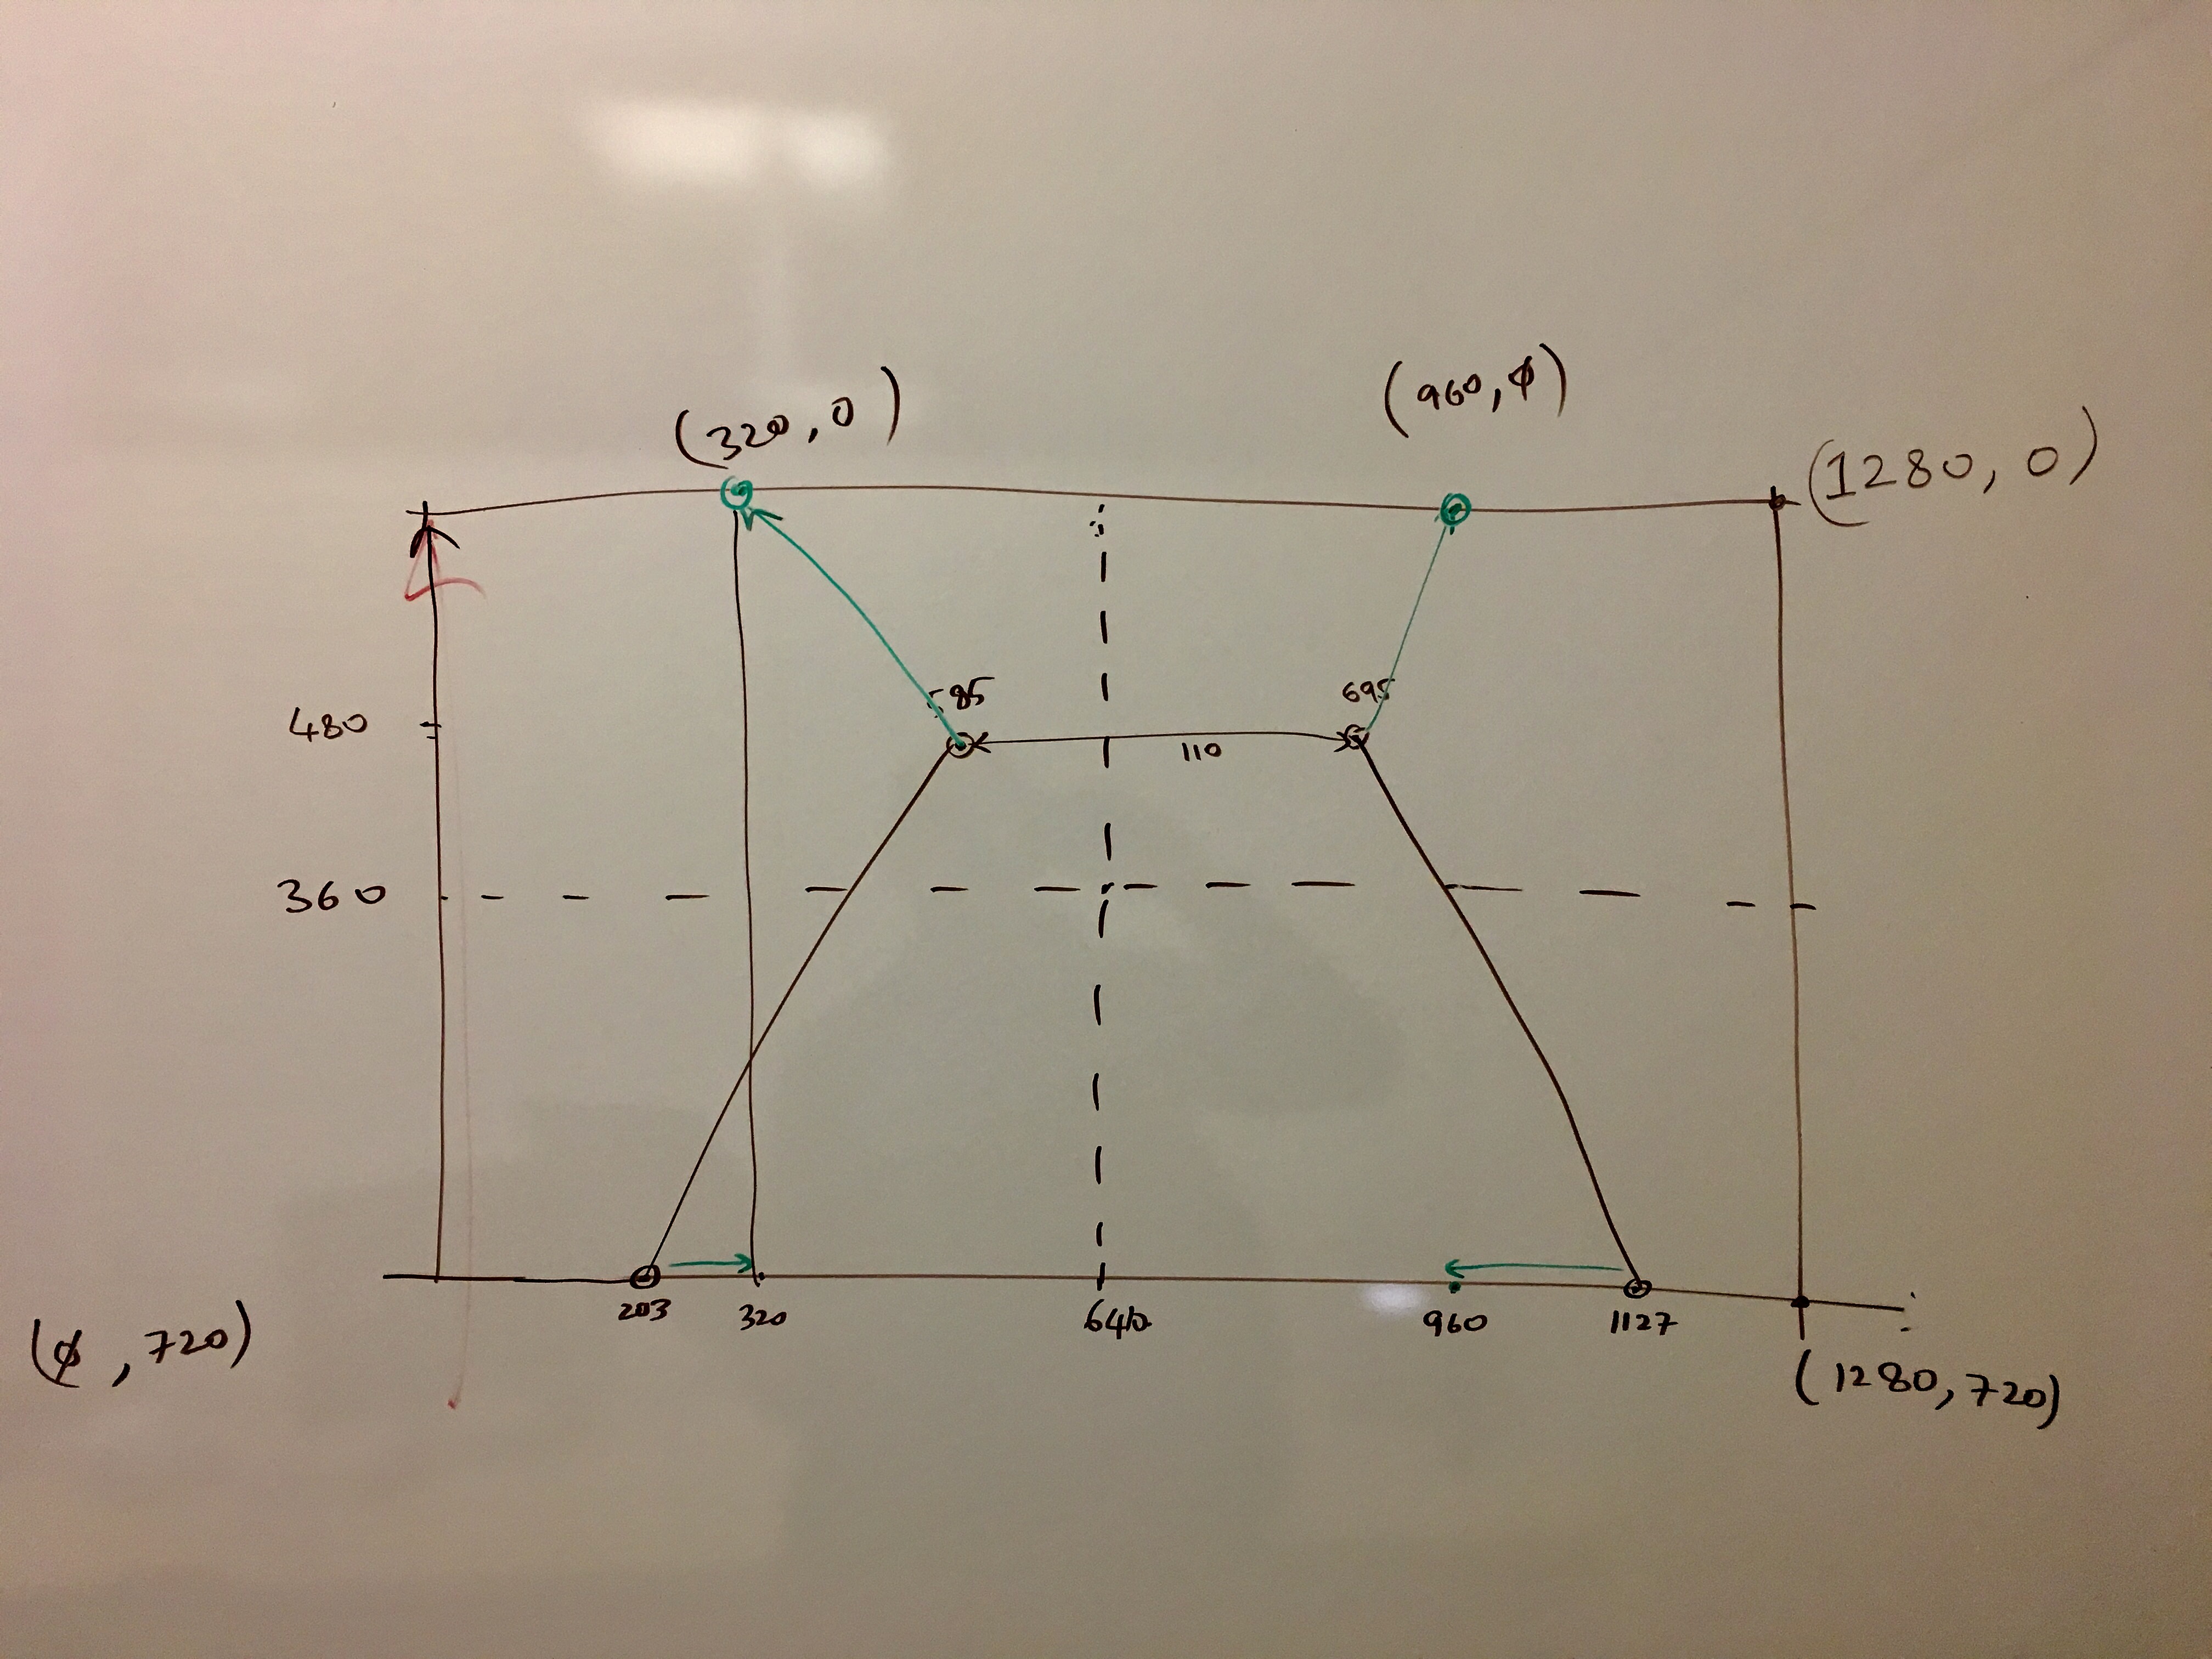 (320, 0)
(960, ϕ)
(1280, 0)
585
695
480
110
360
203
320
640
960
1127
(ϕ, 720)
(1280, 720)